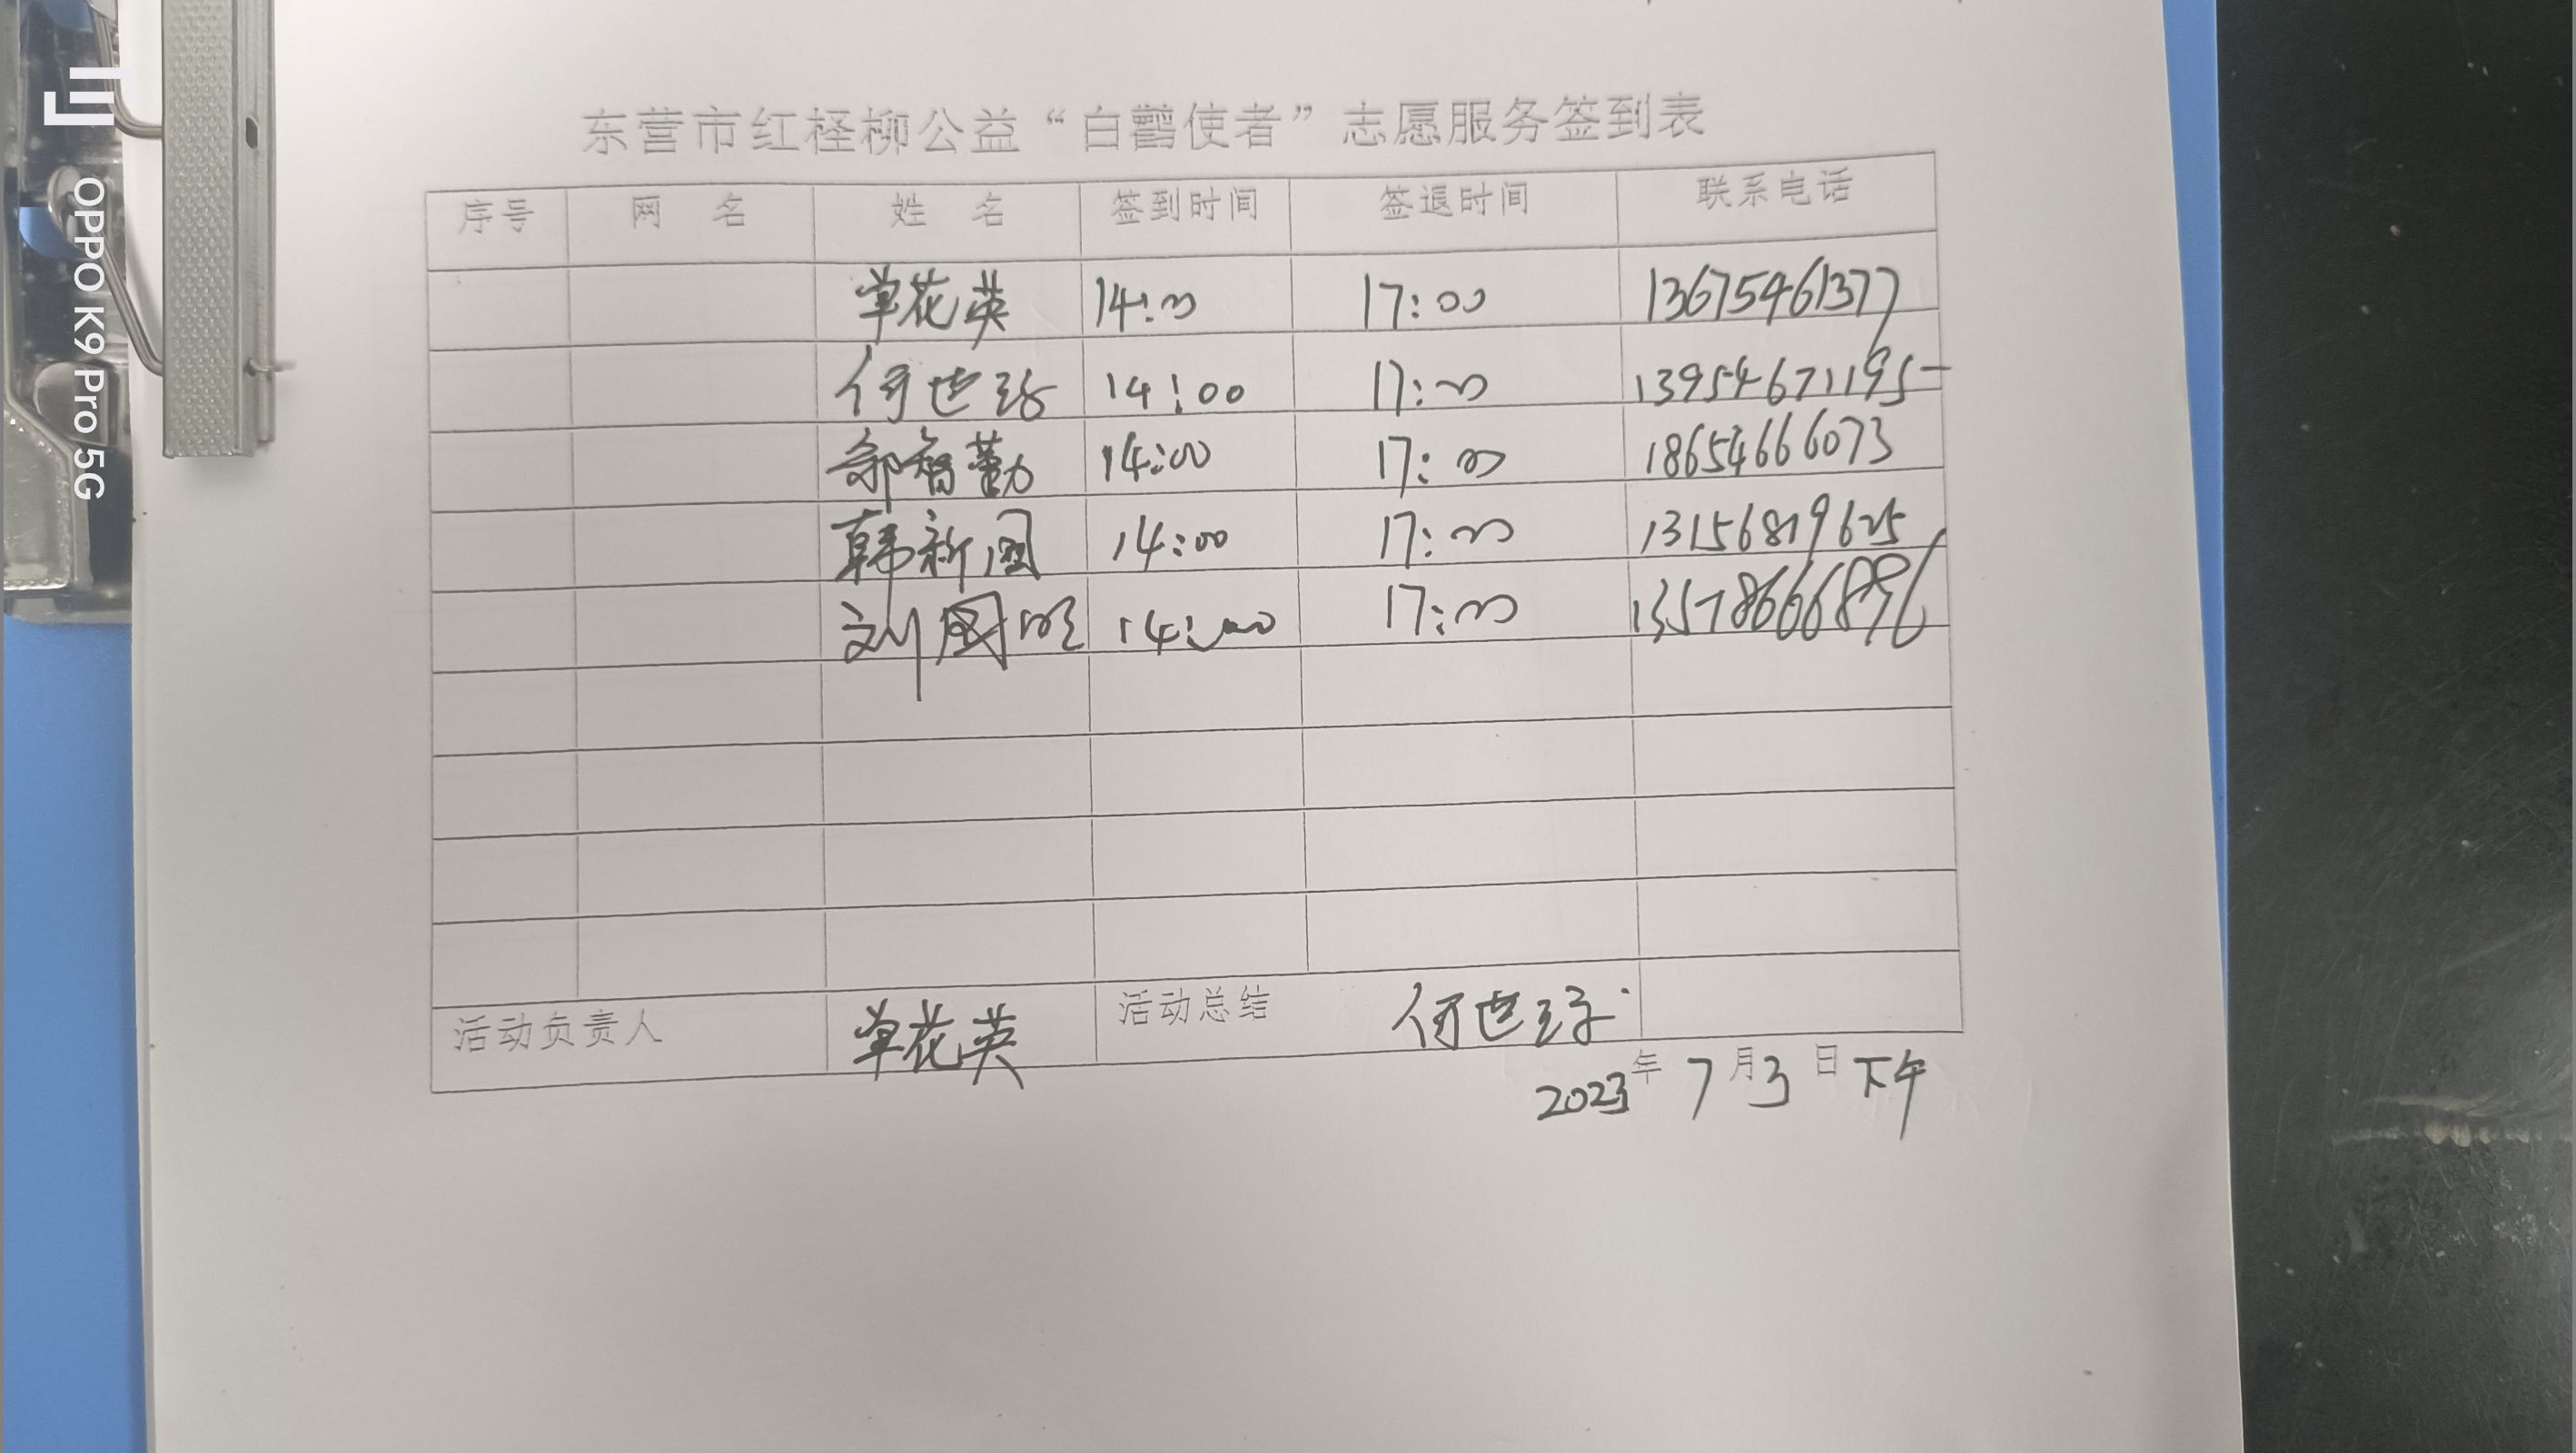 东营市红柽柳公益“白鹳使者”志愿服务签到表
序号 网 名 姓 名 签到时间 签退时间 联系电话
单花英 14:00 17:00 13675461377
何世珍 14:00 17:00 13954671195
郭智勤 14:00 17:00 18654666073
韩新国 14:00 17:00 13156819625
刘国明 14:00 17:00
活动负责人 单花英 活动总结 何世珍
2023年7月3日下午
OPPO K9 Pro 5G